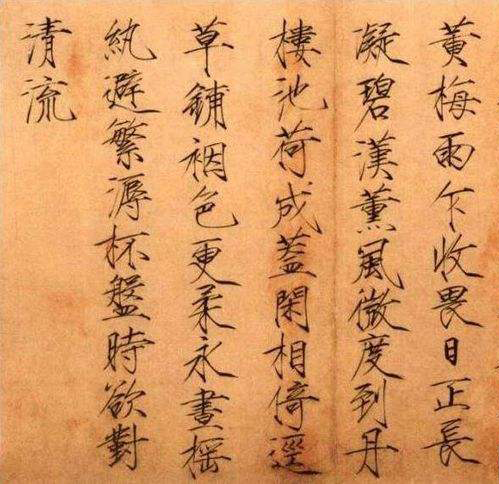 黃梅雨乍收畏日正長
凝碧漢薰風微度到丹
樓池荷成蓋閑相倚逕
草鋪裀色更柔永晝搖
紈避繁溽杯盤時欲對
清流